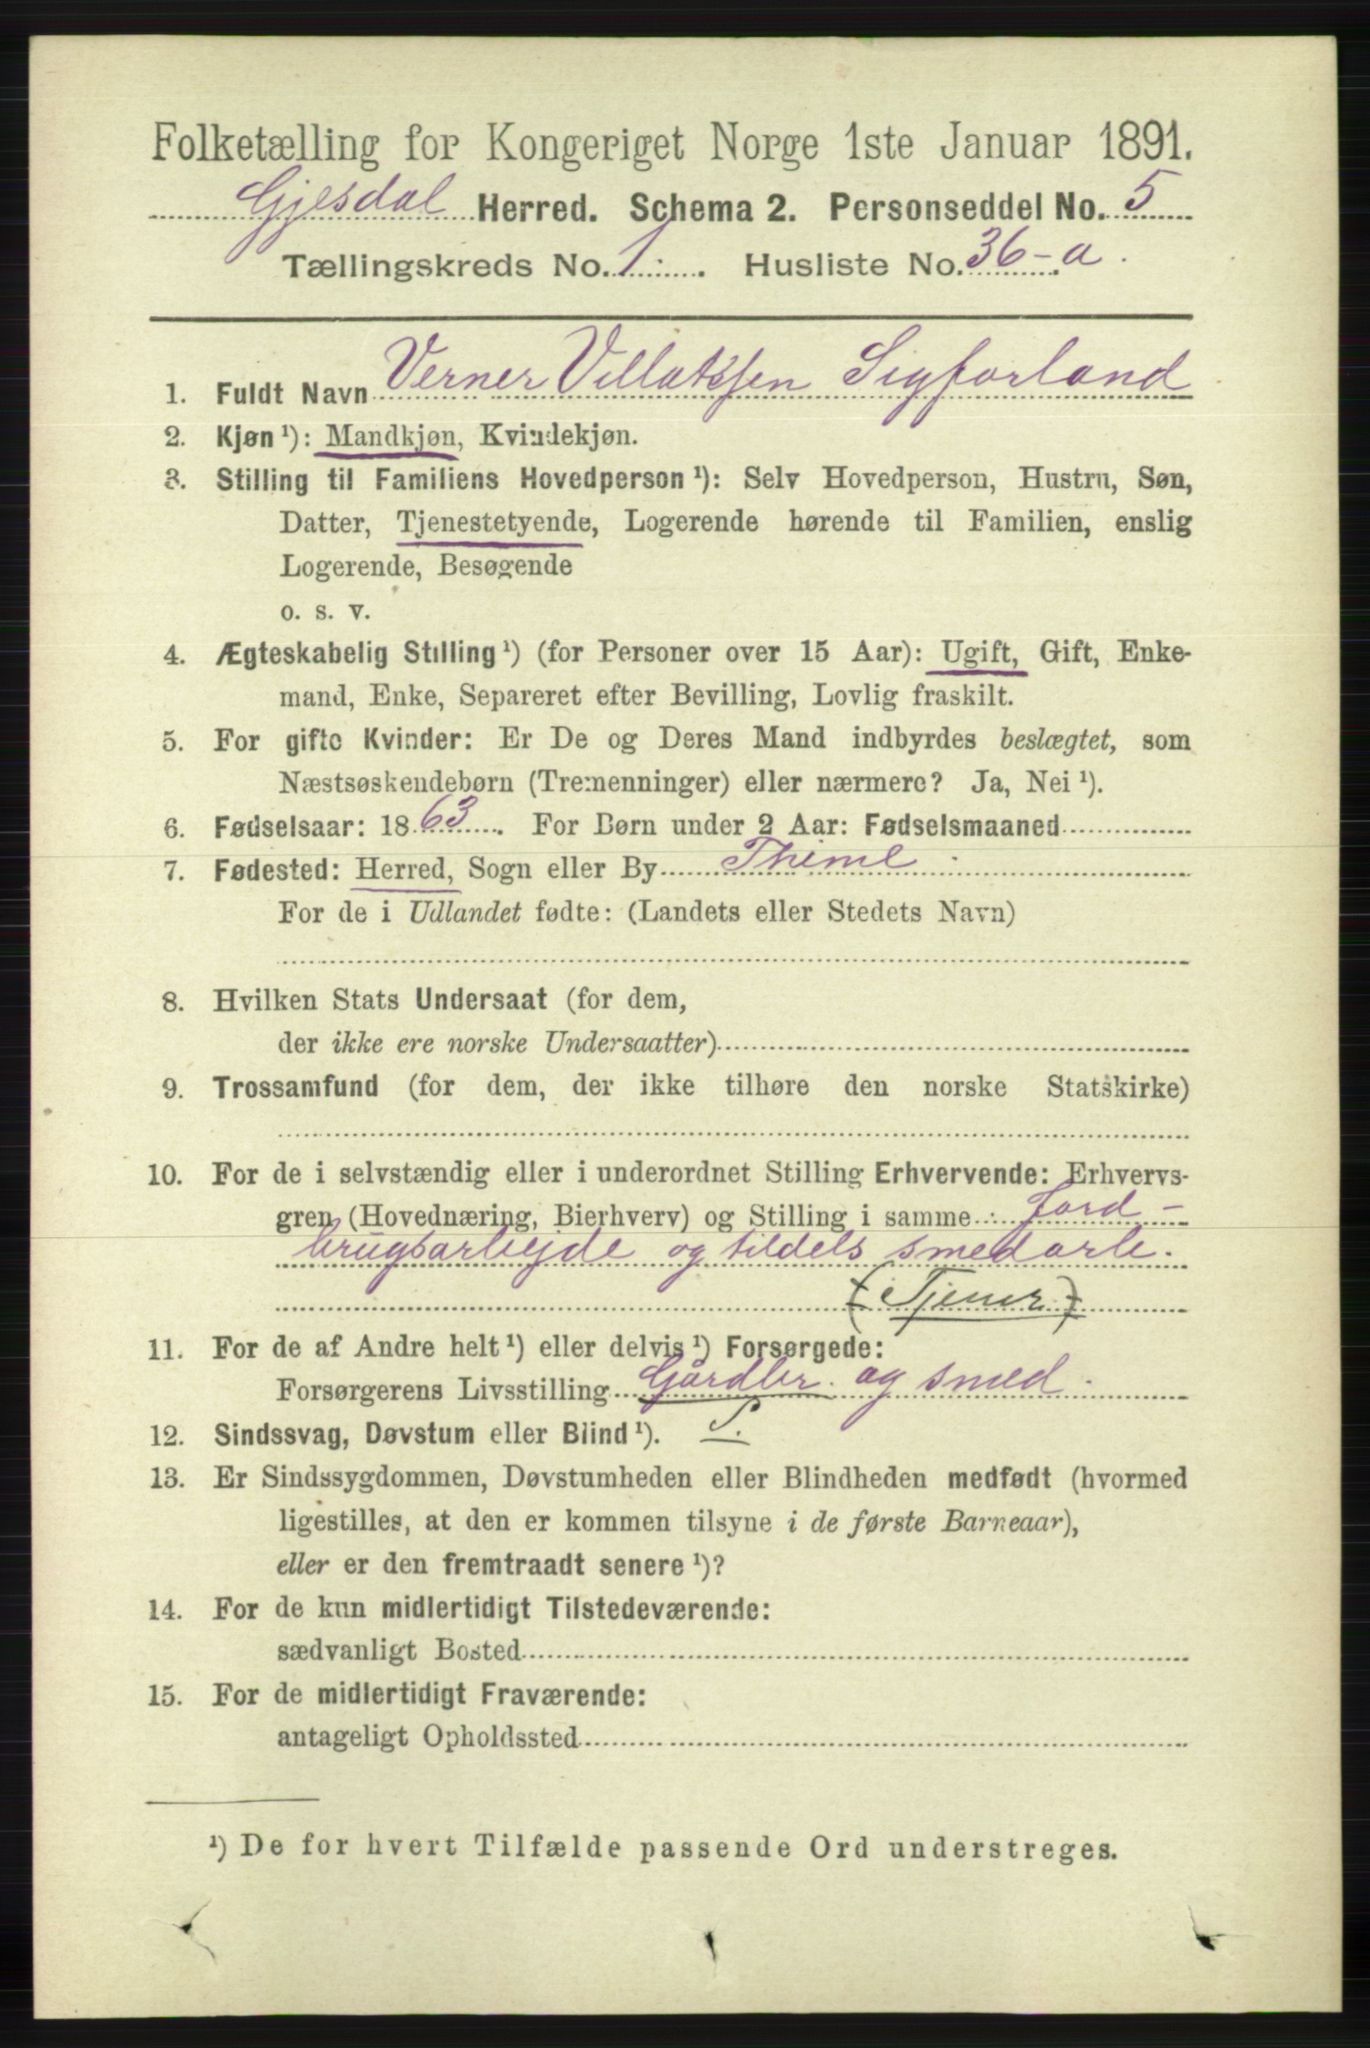 Folketælling for Kongeriget Norge 1ste Januar 1891.
Gjesdal Herred. Schema 2. Personseddel No. 5
Tællingskreds No. 1. Husliste No. 36-a.
1. Fuldt Navn Verner Villatssen Sigforland
2. Kjøn ¹): Mandkjøn, Kvindekjøn.
3. Stilling til Familiens Hovedperson ¹): Selv Hovedperson, Hustru, Søn,
Datter, Tjenestetyende, Logerende hørende til Familien, enslig
Logerende, Besøgende
o. s. v.
4. Ægteskabelig Stilling ¹) (for Personer over 15 Aar): Ugift, Gift, Enke-
mand, Enke, Separeret efter Bevilling, Lovlig fraskilt.
5. For gifte Kvinder: Er De og Deres Mand indbyrdes beslægtet, som
Næstsøskendebørn (Tremenninger) eller nærmere? Ja, Nei ¹).
6. Fødselsaar: 1863. For Børn under 2 Aar: Fødselsmaaned
7. Fødested: Herred, Sogn eller By Thime
For de i Udlandet fødte: (Landets eller Stedets Navn)
8. Hvilken Stats Undersaat (for dem,
der ikke ere norske Undersaatter)
9. Trossamfund (for dem, der ikke tilhøre den norske Statskirke)
10. For de i selvstændig eller i underordnet Stilling Erhvervende: Erhvervs-
gren (Hovednæring, Bierhverv) og Stilling i samme: Jord-
brugsarbejde og tildels smedarb.
(Tjener)
11. For de af Andre helt ¹) eller delvis ¹) Forsørgede:
Forsørgerens Livsstilling Gårdbr. og smed.
12. Sindssvag, Døvstum eller Blind ¹). S.
13. Er Sindssygdommen, Døvstumheden eller Blindheden medfødt (hvormed
ligestilles, at den er kommen tilsyne i de første Barneaar),
eller er den fremtraadt senere ¹)?
14. For de kun midlertidigt Tilstedeværende:
sædvanligt Bosted
15. For de midlertidigt Fraværende:
antageligt Opholdssted
¹) De for hvert Tilfælde passende Ord understreges.